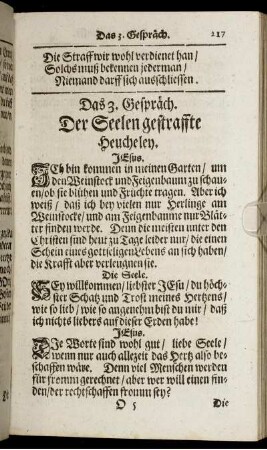 Das 3. Gespräch. 217
Die Straff wir wohl verdienet han/
Solchs muß bekennen jederman/
Niemand darff sich ausschliessen.
Das 3. Gespräch.
Der Seelen gestraffte
Heucheley.
JEsus.
JCh bin kommen in meinen Garten/ um
den Weinstock und Feigenbaum zu schau-
en/ob sie blühen und Früchte tragen. Aber ich
weiß/ daß ich bey vielen nur Herlinge am
Weinstocke/ und am Feigenbaume nur Blät-
ter finden werde. Denn die meisten unter den
Christen sind heut zu Tage leider nur/ die einen
Schein eines gottseligen Lebens an sich haben/
die Krafft aber verleugnen sie.
Die Seele.
SEy willkommen/ liebster JEsu/ du höch-
ster Schatz und Trost meines Hertzens/
wie so lieb/ wie so angenehm bist du mir/ daß
ich nichts liebers auf dieser Erden habe!
JEsus.
DJe Worte sind wohl gut/ liebe Seele/
wenn nur auch allezeit das Hertz also be-
schaffen wäre. Denn viel Menschen werden
für fromm gerechnet/ aber wer will einen fin-
den/der rechtschaffen fromm sey?
O 5 Die